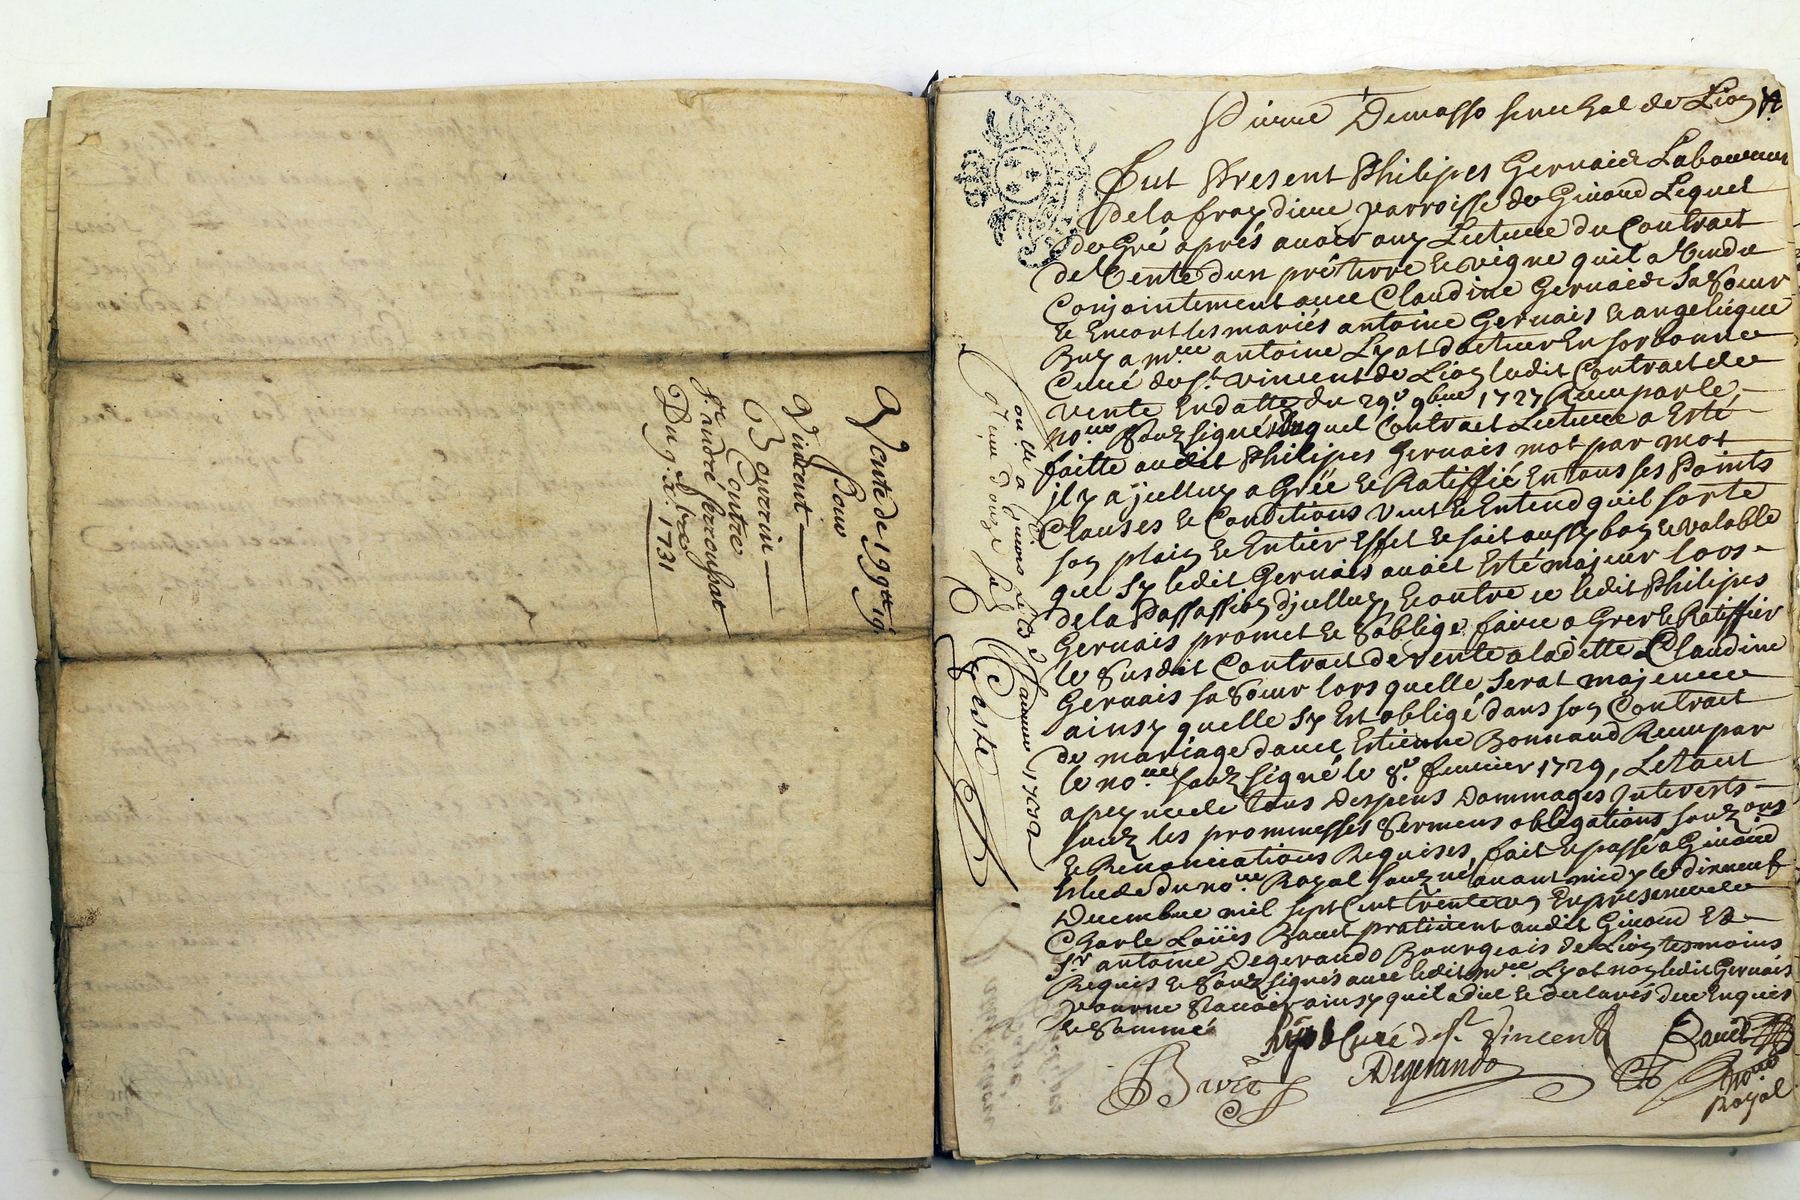 Vente de 199tt 19s
Pour
Vincent
Berrin
Contre
Sr. andré ferroussat
Du 9e Xbre 1731
Pierre Demasso senechal de Lion
Fut Present Philipes Gervais Laboureur
de la frardiere parroisse de Givord Lequel
de Gré aprés avoir ouy Lecture du Contrait
de Vente dun pré terre & vigne quil a Vendu
Conjointement avec Claudine Gervais Sa Soeur
& Encort les mariés antoine Gervais & angeliqque
Buy a mre antoine Lyot docteur En sorbonne
Curé de St. vincent de Lion ledit Contrait de
vente Endatte du 29e 9bre 1727 Receu par le
nore Souz signé duquel Contrait Lecture a Esté
faitte audit Philipes Gervais mot par mot
il y a jcelluy a Gréé & Ratiffié En tous ses Points
Clauses & Conditions veut & Entend quil sorte
son plain & Entier Effet & soit aussy bon & valable
que sy ledit Gervais avoit Esté majeur lors
de la Passassion djcelluy, & outre ce ledit Philipes
Gervais promet & Soblige faire a Greer & Ratiffier
le Susdit Contrait de vente a ladette Claudine
Gervais sa Soeur lors quelle Serat majeure
ainsy quelle sy Est obligé dans son Contrait
de mariage davec Estienne Bonnaud Receu par
le nore souz signé le 8e fevrier 1729, Letout
a peyne de tous Despens Dommages Interests
souz les prommesses Sermens obligations souzons
& Renonciations Requises, fait & passé a Givord
Estude du nore Royal souzné avant midy le dixneuf
Decembre mil sept Cent trente un En présence de
Charle Loüis Bauet praticient audit Givord Et
Sr antoine Degerando Bourgeois de Lion tesmoins
Requis & Souz signés avec ledit mre Lyot non ledit Gervais
pour ne Scavoir ainsy quil a dit & declarés de ce Enquis
& Sommé
Lyot Curé de St. Vincent
Bauet
Degerando
nore
Royal
janvier 1732